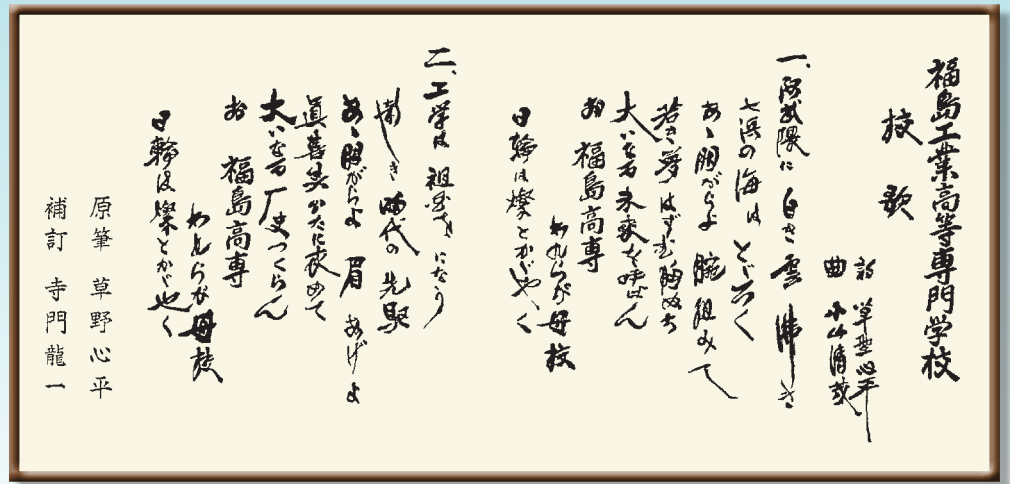 福島工業高等専門学校
校歌
詩 草野心平
曲 小山清茂
一、阿武隈に 白き雲 沸き
七浜の海は とどろく
あゝ 胸がらよ 腕 組みて
若き夢 はずむ 胸ぬち
大いなる 未来を呼ばん
お 福島高専
われらが 母校
日輪は 燦とかがやく
二、工学は 祖国を になう
新しき 時代の 先駆
あゝ 胸がらよ 眉 あげよ
真善美 かたに 求めて
大いなる 厂史 つくらん
お 福島高専
われらが 母校
日輪は 燦とかがやく
原筆 草野心平
補訂 寺門龍一